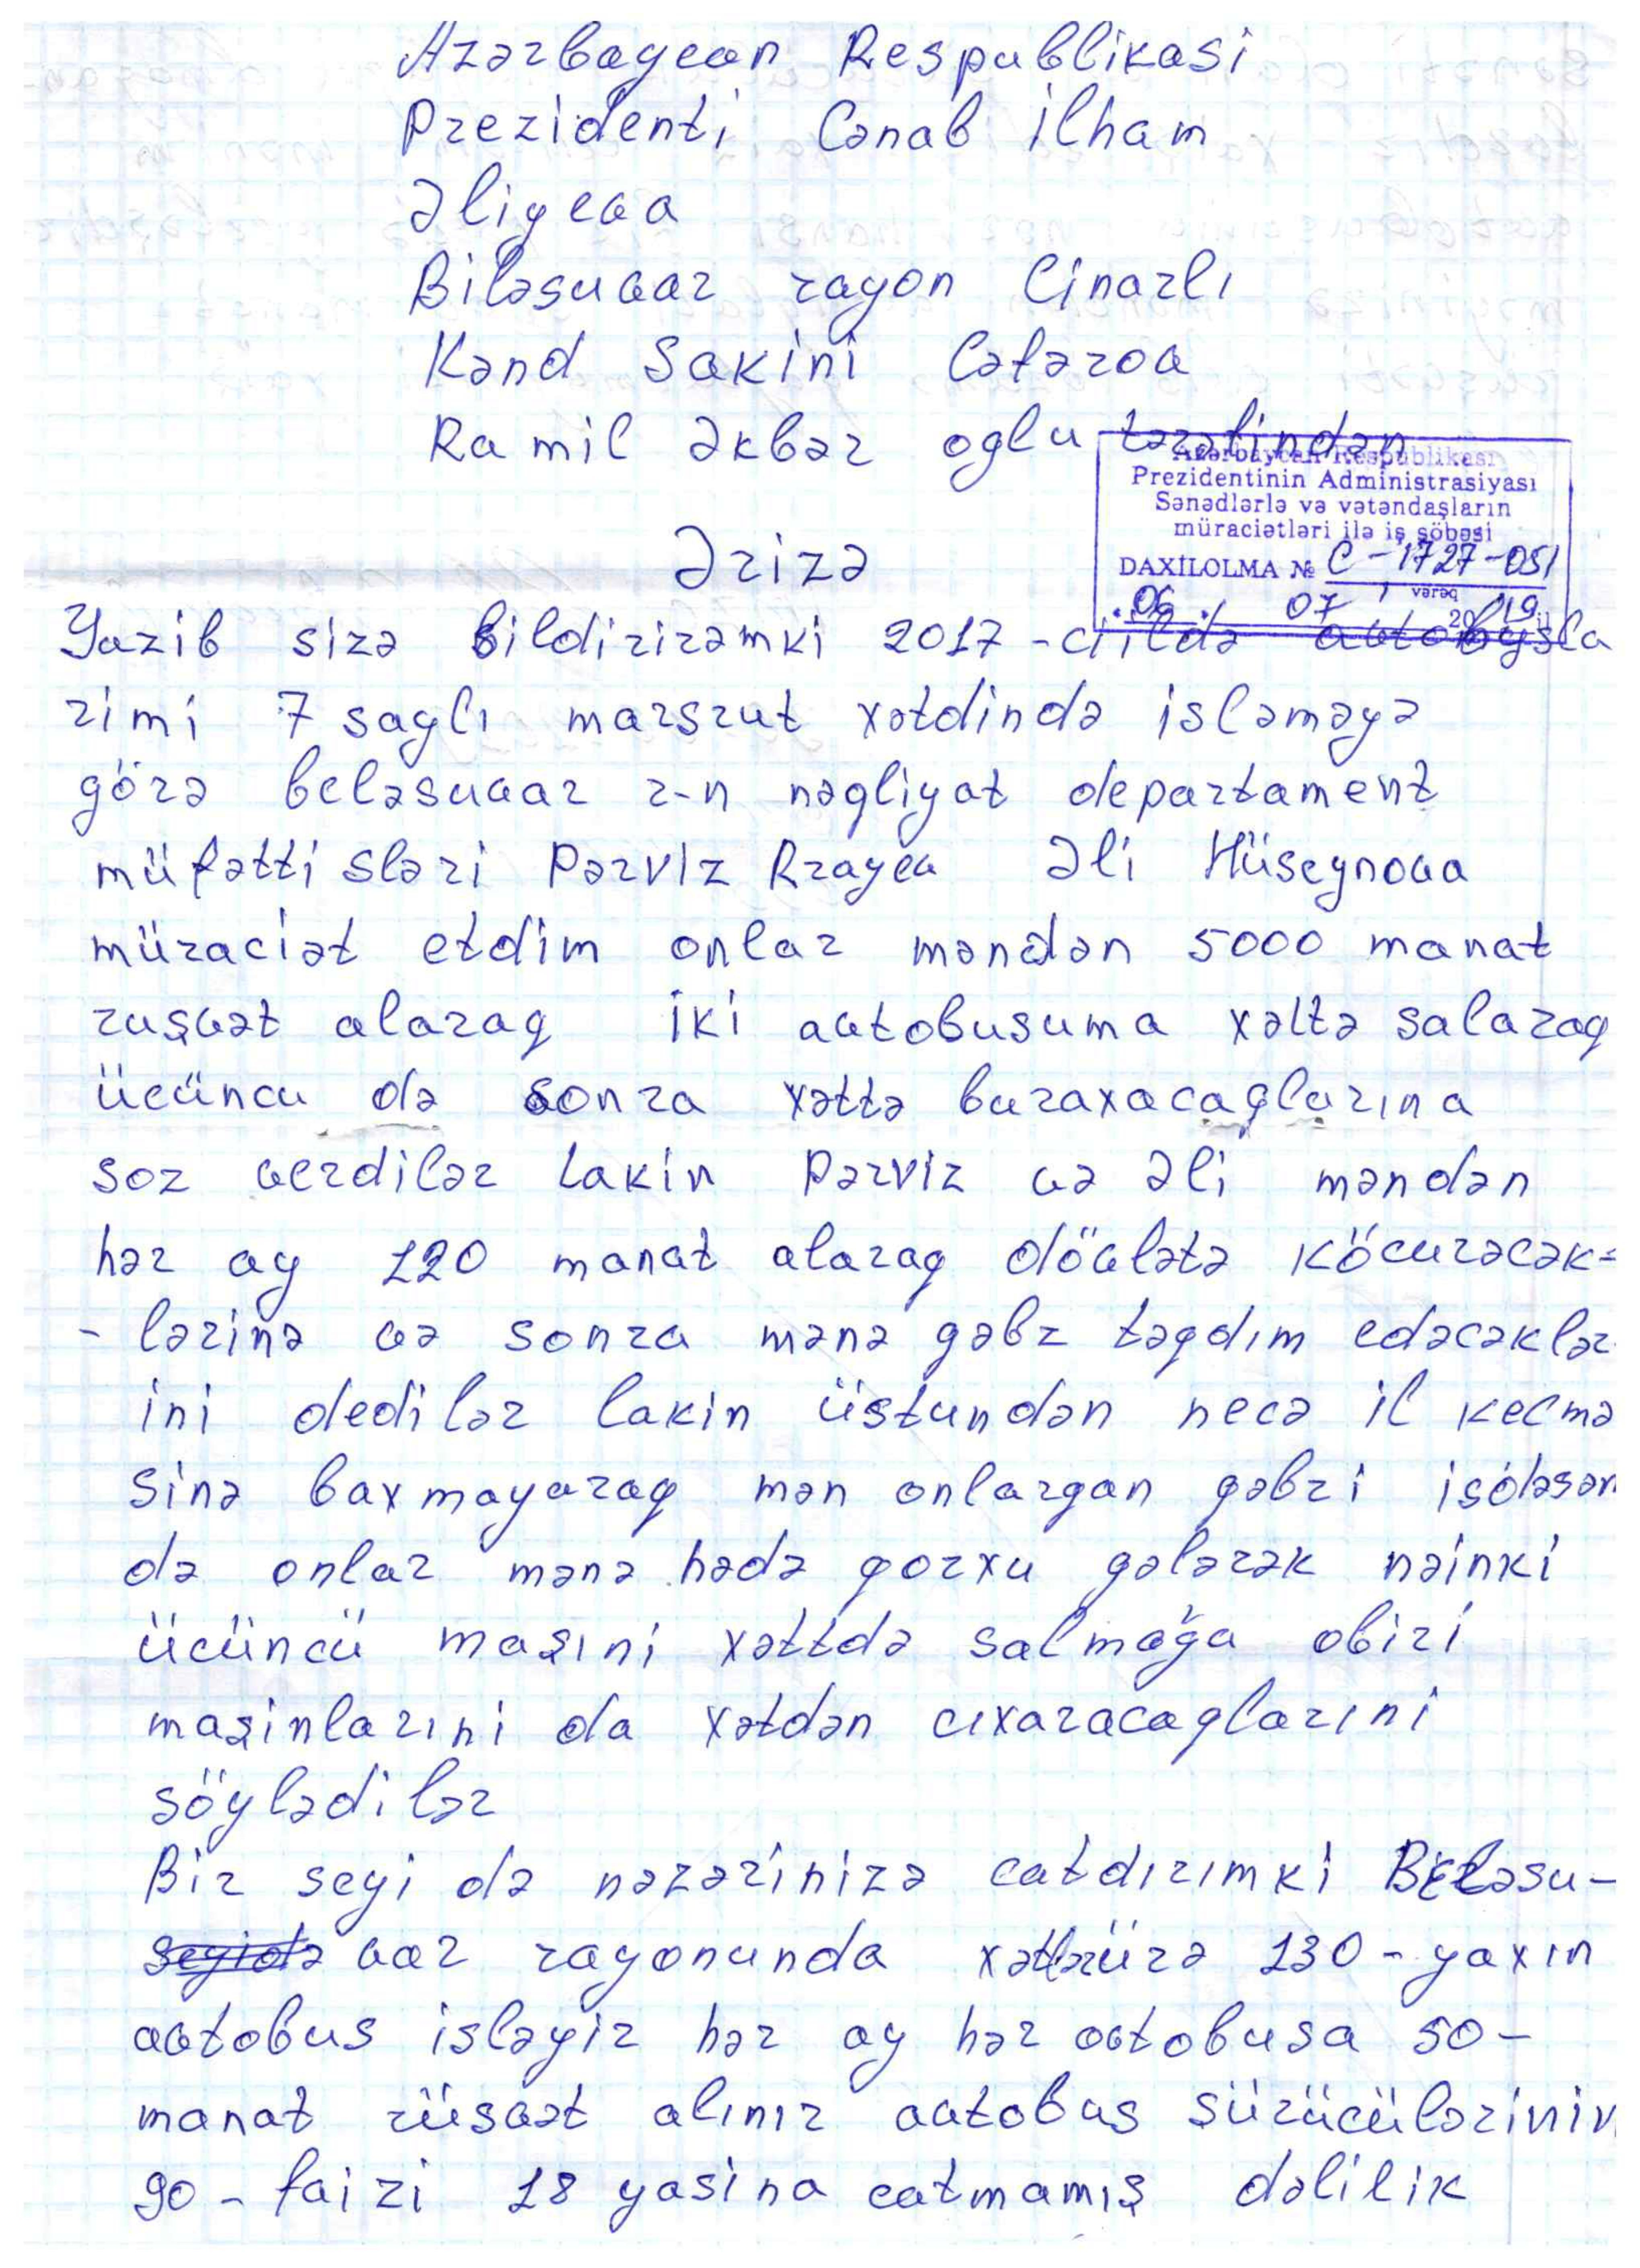 Azərbaycan Respublikasi
Prezidenti Cənab İlham
Əliyeva
Biləsuvar rayon Cinarlı
Kənd Sakini Cəfərov
Ramil Əkbər oglu tərəfindən
Azərbaycan Respublikası
Prezidentinin Administrasiyası
Sənədlərlə və vətəndaşların
müraciətləri ilə iş şöbəsi
DAXİLOLMA № C-1727-051
vərəq
06 07 2019
Ərizə
Yazib sizə bildirirəmki 2017-ci ildə avtobusla
rimi 7 saylı marsrut xətdində isləməyə
görə beləsuvar r-n nəqliyat departament
müfəttisləri Pərviz Rzayev Əli Hüseynova
müraciət etdim onlar məndən 5000 manat
ruşvət alaraq iki avtobusuma xəltə salaraq
ücüncu də sonra xəttə buraxacaqlarına
soz verdilər Lakin Pərviz və Əli məndən
hər ay 120 manat alaraq dövlətə köcurəcək=
- lərinə və sonra mənə qəbz təqdım edəcəklər
ini dedilər lakin üstundən necə il kecmə
sinə baxmayaraq mən onlargan qəbzi isdəsəm
də onlar mənə hədə qorxu gələrək nəinki
ücüncü maşıni xəttdə salmağa obiri
maşinlarıni da xətdən cıxaracaqlarıni
söylədilər
Bir seyi də nəzərinizə catdırımki Biləsu-
var rayonunda 130-yaxın
avtobus isləyir hər ay hər avtobusa 50-
manat rüsvət alınır avtobus sürücülərinin
90-faizi 18 yasina catmamış dəlilik